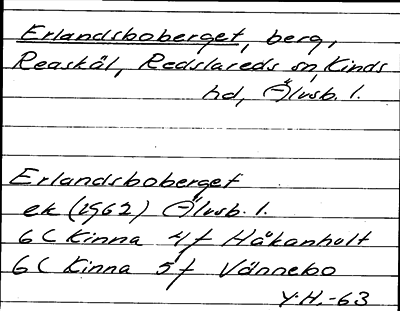 Erlandsboberget, berg,
Reaskäl, Redslareds sn, Kinds
hd, Älvsb. l.
Erlandsboberget
ek (1962) Älvsb. l.
6 C Kinna 4 f Håkanhult
6 C Kinna 5 f Vännebo
Y.H. -63